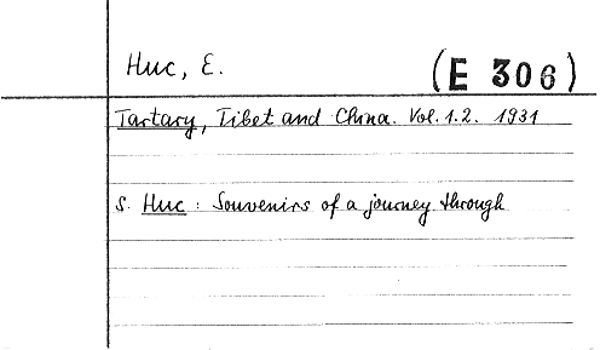 Huc, E. (E 306)
Tartary, Tibet and China. Vol. 1.2. 1931
s. Huc : Souvenirs of a journey through